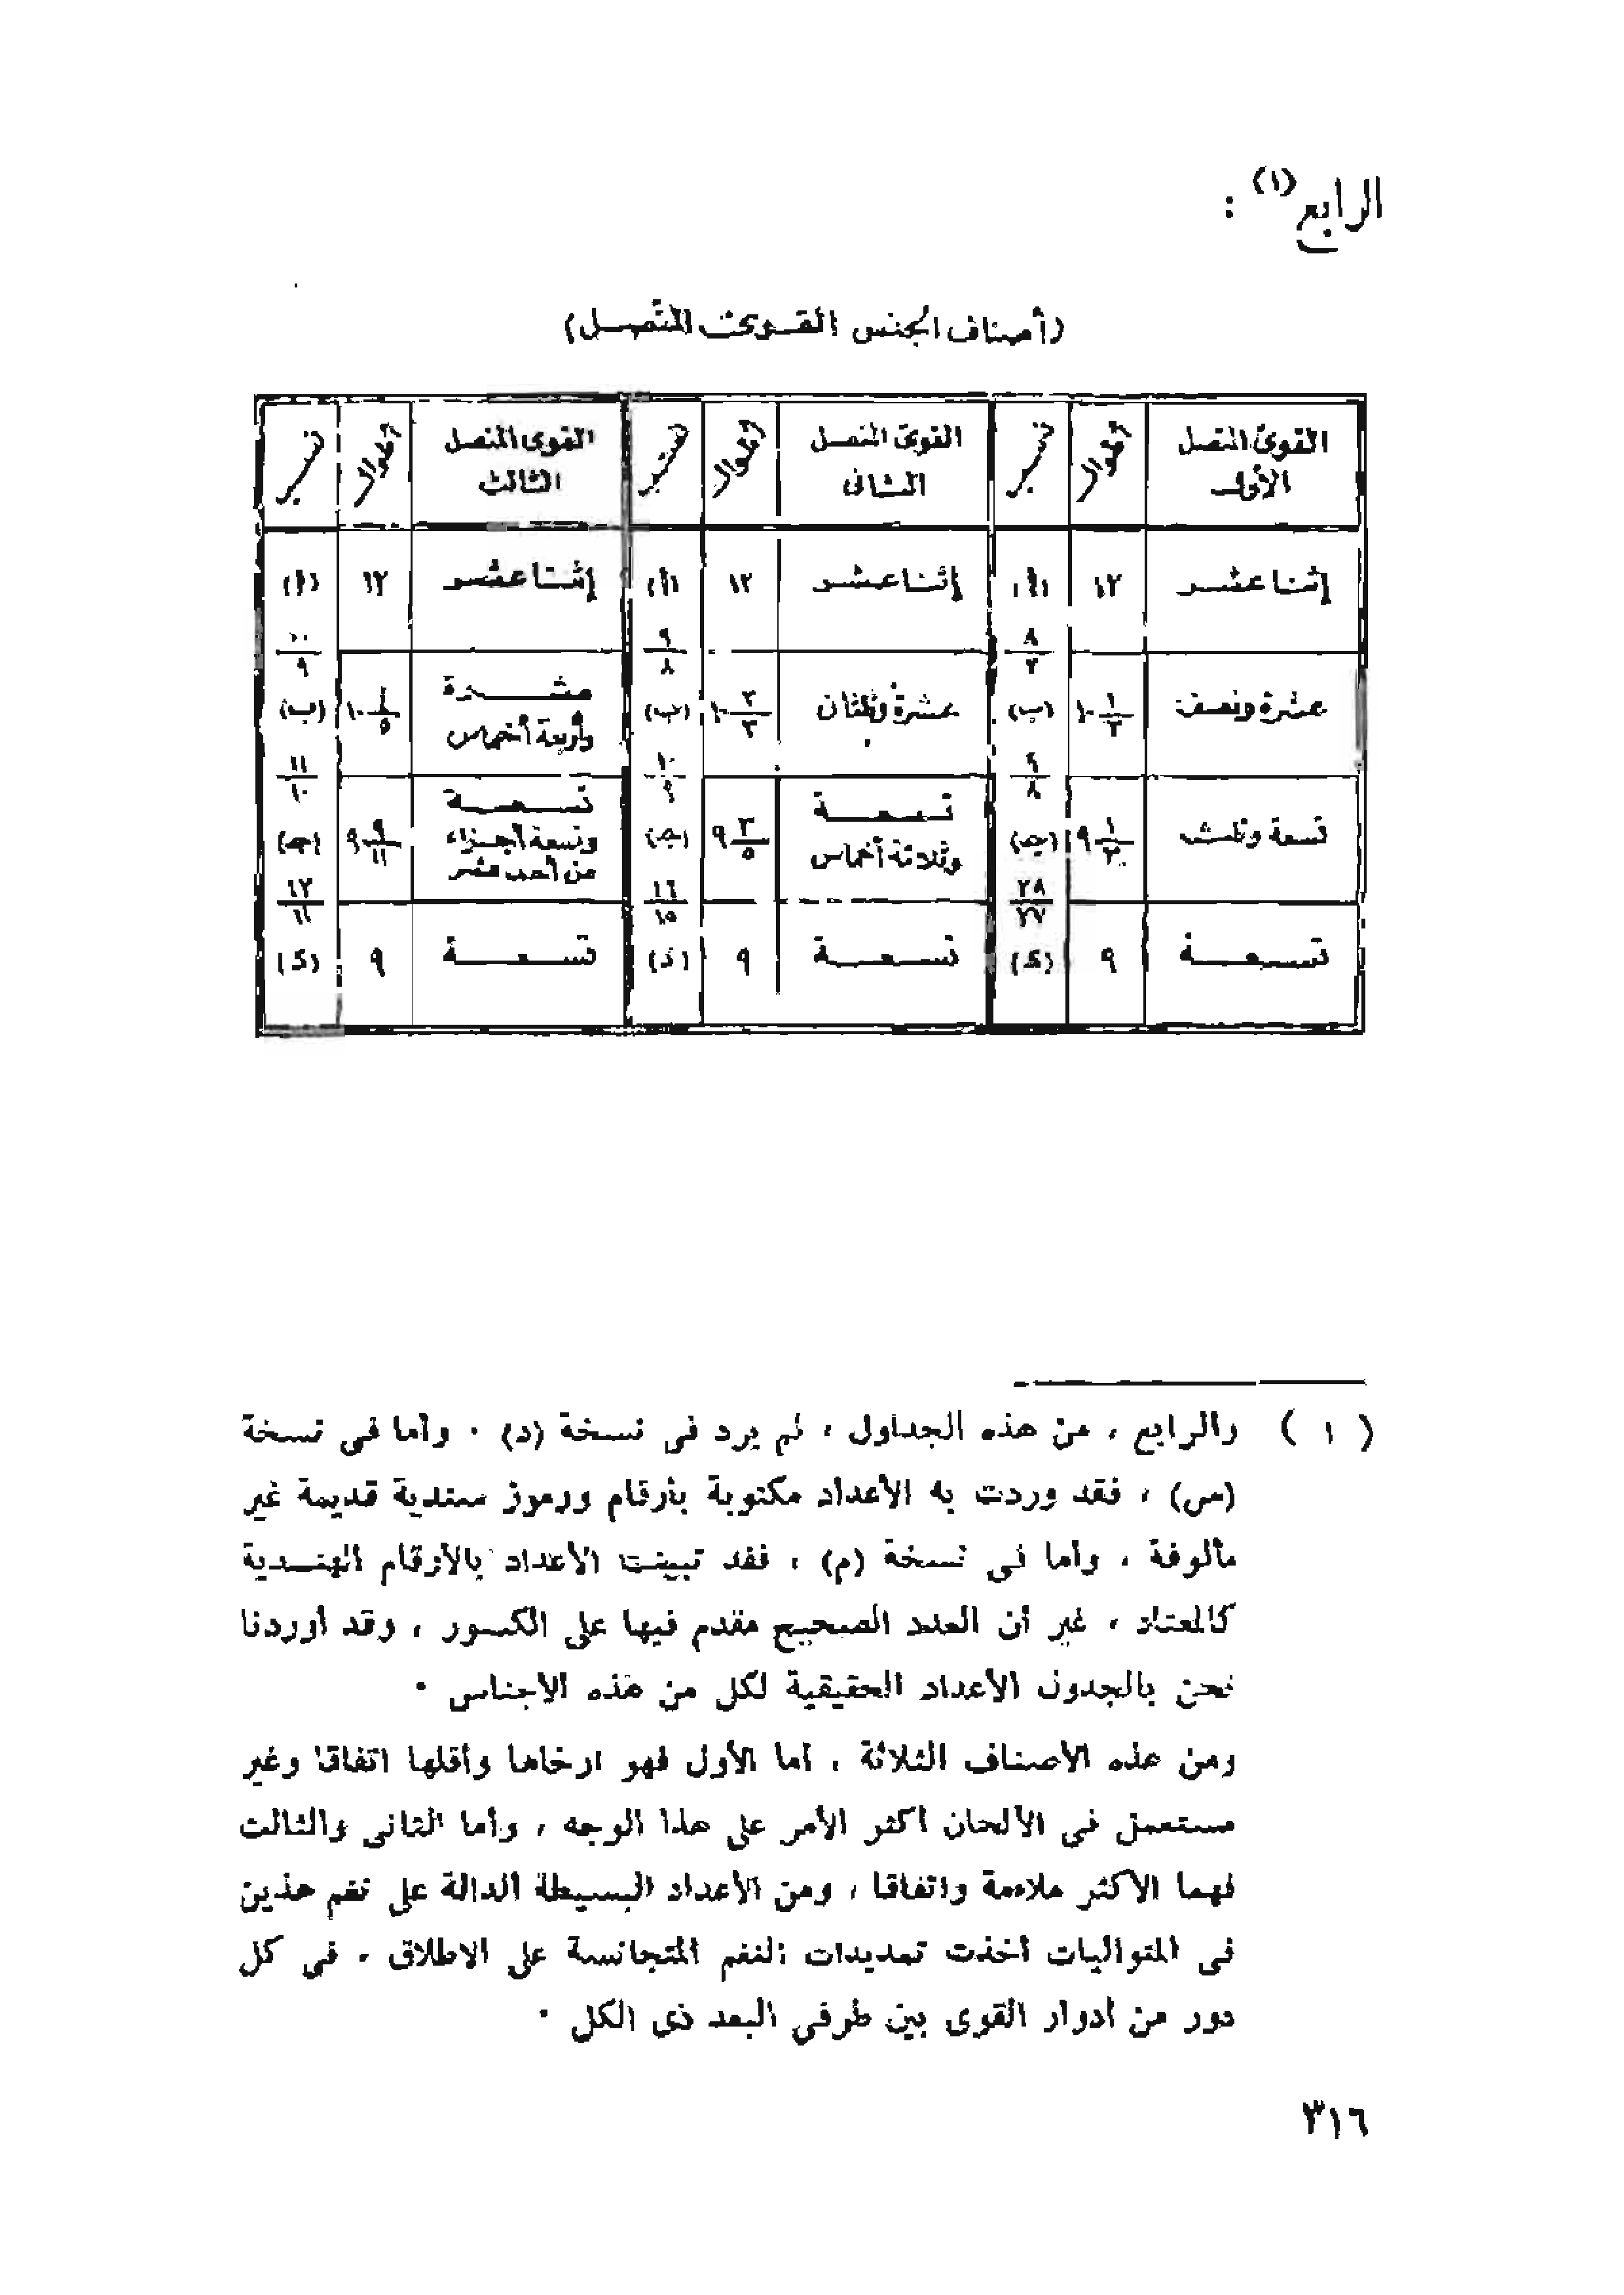 الرابع (١) :
(أصناف الجنس القوى المتصل)
القوى المتصل الأول | أطوال | | القوى المتصل الثانى | أطوال | | القوى المتصل الثالث | أطوال |
إثنا عشر | ١٢ | (أ) | إثنا عشر | ١٢ | (أ) | إثنا عشر | ١٢ | (أ)
٨/٧ | ٩/٨ | ١٠/٩
عشرة ونصف | ١٠ ١/٢ | (ب) | عشرة وثلثان | ١٠ ٢/٣ | (ب) | عشرة وأربعة أخماس | ١٠ ٤/٥ | (ب)
٩/٨ | ١٠/٩ | ١١/١٠
تسعة وثلث | ٩ ١/٣ | (جـ) | تسعة وثلاثة أخماس | ٩ ٣/٥ | (جـ) | تسعة وتسعة أجزاء من أحد عشر | ٩ ٩/١١ | (جـ)
٢٨/٢٧ | ١٦/١٥ | ١٢/١١
تسعة | ٩ | (د) | تسعة | ٩ | (د) | تسعة | ٩ | (د)
( ١ ) والرابع ، من هذه الجداول ، لم يرد فى نسخة (د) . وأما فى نسخة
(س) ، فقد وردت به الأعداد مكتوبة بأرقام ورموز سندية قديمة غير
مألوفة ، وأما فى نسخة (م) ، فقد تبينت الأعداد بالأرقام الهندية
كالمعتاد ، غير أن العدد الصحيح مقدم فيها على الكسور ، وقد أوردنا
نحن بالجدول الأعداد الحقيقية لكل من هذه الأجناس .
ومن هذه الأصناف الثلاثة ، أما الأول فهو ارخاها وأقلها اتفاقا وغير
مستعمل فى الألحان أكثر الأمر على هذا الوجه ، وأما الثانى والثالث
فهما الأكثر ملاءمة واتفاقا ، ومن الأعداد البسيطة الدالة على نغم هذين
فى المتواليات أخذت تمديدات النغم المتجانسة على الاطلاق ، فى كل
دور من أدوار القوى بين طرفى البعد ذى الكل .
٣١٦